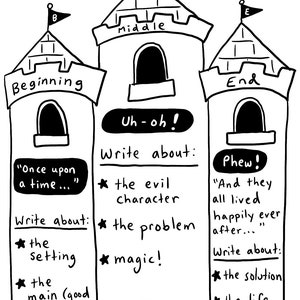 B
Beginning
"Once upon
a time..."
Write about:
★ the
setting
★ the
main (good
Middle
Uh-oh!
Write about:
★ the evil
character
★ the problem
★ magic!
E
End
Phew!
"And they
all lived
happily ever
after..."
Write about:
★ the solution
★ the life